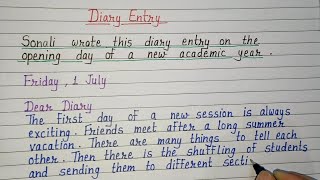 Diary Entry
Sonali wrote this diary entry on the
opening day of a new academic year.
Friday, 1 July
Dear Diary
The first day of a new session is always
exciting. Friends meet after a long summer
vacation. There are many things to tell each
other. Then there is the shuffling of students
and sending them to different secti